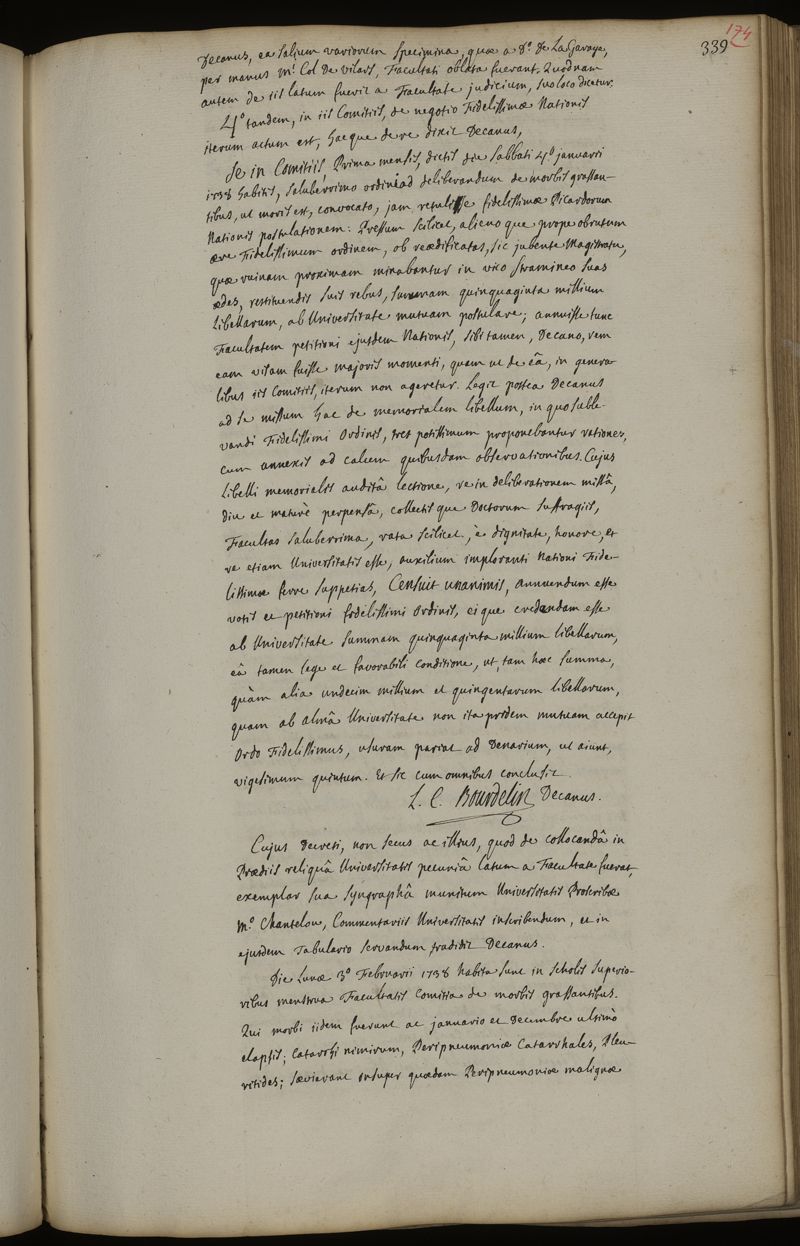 174
339
Decanus, ea salium variorum specimina, quæ a D.º De La Garaye,
per manus M.ⁱ Col De Vilars, Facultati oblata fuerant. Quodnam
autem de iis latum fuerit a Facultate judicium, suo loco dicetur.
4.º tandem, in iis Comitiis, de negotio Fidelissimæ Nationis
iterum actum est, hacque de re dixit Decanus,
Se in Comitiis Prima mensis, dictis die Sabbati 4.º januarii
1738 habitis, saluberrimo ordine ad deliberandum de morbis grassan-
tibus, ut moris est, convocato, jam retulisse fidelissimæ Picardorum
Nationis postulationem: Pressum scilicet, alieno que prope obrutum
ære Fidelissimum ordinem, ob reædificatas, sic jubente Magistratu,
quæ ruinam proximam minabantur in vico stramineo suas
ædes, restituendis suis rebus, summam quinquaginta millium
Libellarum, ab Universitate mutuam postulare; annuisse tunc
Facultatem petitioni ejusdem Nationis, sibi tamen, Decano, rem
eam visam fuisse majoris momenti, quam ut de eâ, in genera-
libus iis Comitiis, iterum non ageretur. Legit postea Decanus
ad se missum hac de memorialem libellum, in quo suble-
vandi Fidelissimi Ordinis, tres potissimum proponebantur rationes,
cum annexis ad calcem quibusdam observationibus. Cujus
Libelli memorialis auditâ lectione, re in deliberationem missâ,
diu et maturè perpensâ, collectis que Doctorum suffragiis,
Facultas saluberrima, rata scilicet, è dignitate, honore, et
re etiam Universitatis esse, auxilium imploranti Nationi Fide-
lissimæ ferre suppetias, Censuit unanimis, annuendum esse
votis et petitioni fidelissimi Ordinis, ei que credendam esse
ab Universitate summam quinquaginta millium libellarum,
eâ tamen lege et favorabili conditione, ut, tam hæc summa,
quàm alia undecim millium et quingentarum libellarum,
quam ab almâ Universitate non ita pridem mutuam accepit
Ordo Fidelissimus, usuram pariat ad Denarium, ut aiunt,
vigesimum quintum. Et sic cum omnibus conclusit.
L. C. Bourdelin Decanus.
Cujus Decreti, non secus ac illius, quod de collocandâ in
Prædiis reliquâ Universitatis pecuniâ latum a Facultate fuerat,
exemplar sua syngraphâ munitum Universitatis Proscribæ
M.º Chantelou, Commentariis Universitatis inscribendum, et in
ejusdem Tabulario servandum tradidit Decanus.
Die Lunæ 3.º Februarii 1738 habita sunt in scholis superio-
ribus menstrua Facultatis Comitia de morbis grassantibus.
Qui morbi iidem fuerunt ac januario et Decembre ultimò
elapsis; Catarrhi nimirum, Peripneumoniæ Catarrhales, Pleu-
ritides; sævierant insuper quædam Peripneumoniæ malignæ